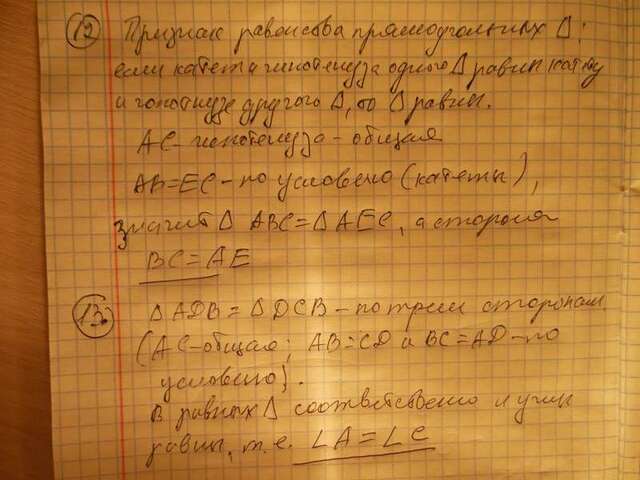 12 Признак равенства прямоугольных Δ:
если катет и гипотенуза одного Δ равны катету
и гипотенузе другого Δ, то Δ равны.
AC - гипотенуза - общая
AB = EC - по условию (катеты),
значит Δ ABC = Δ AEC, а сторона
BC = AE
13. Δ ADB = Δ DCB - по трем сторонам.
(AC - общая; AB = CD и BC = AD - по
условию).
В равных Δ соответственно и углы
равны, т.е. ∠A = ∠C